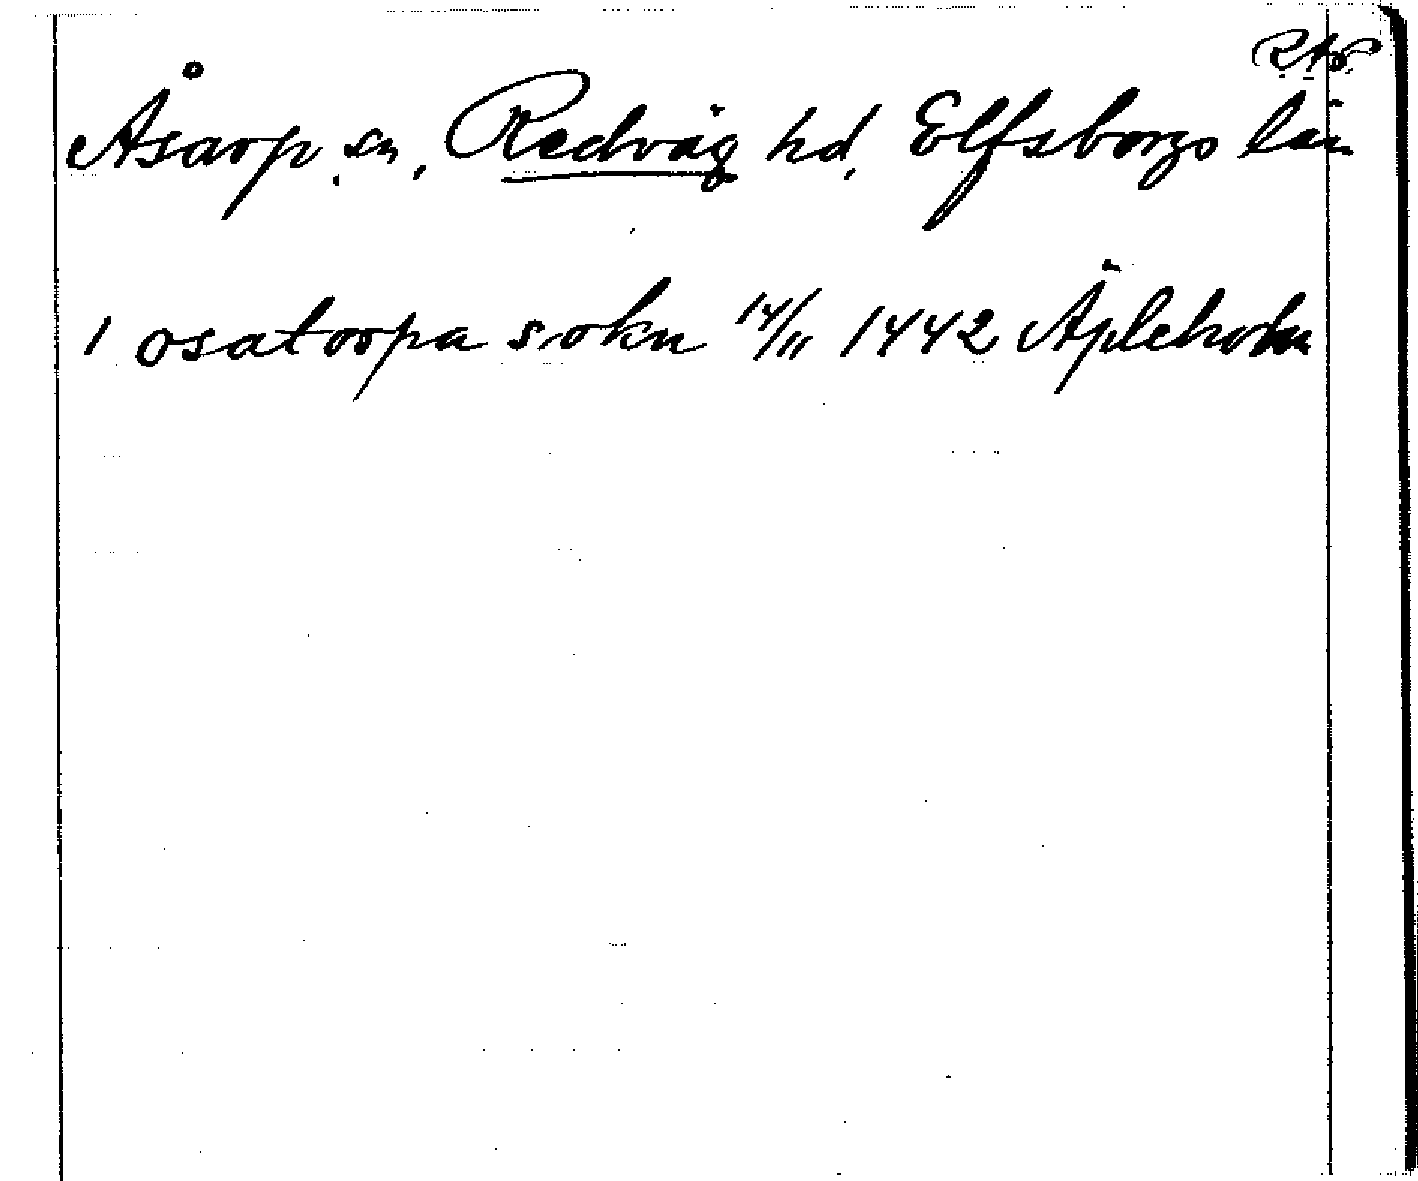 RAP.
Åsarp sn, Redväg hd, Elfsborgs län
1 osatorpa sokn 14/11 1442 Äpleholm